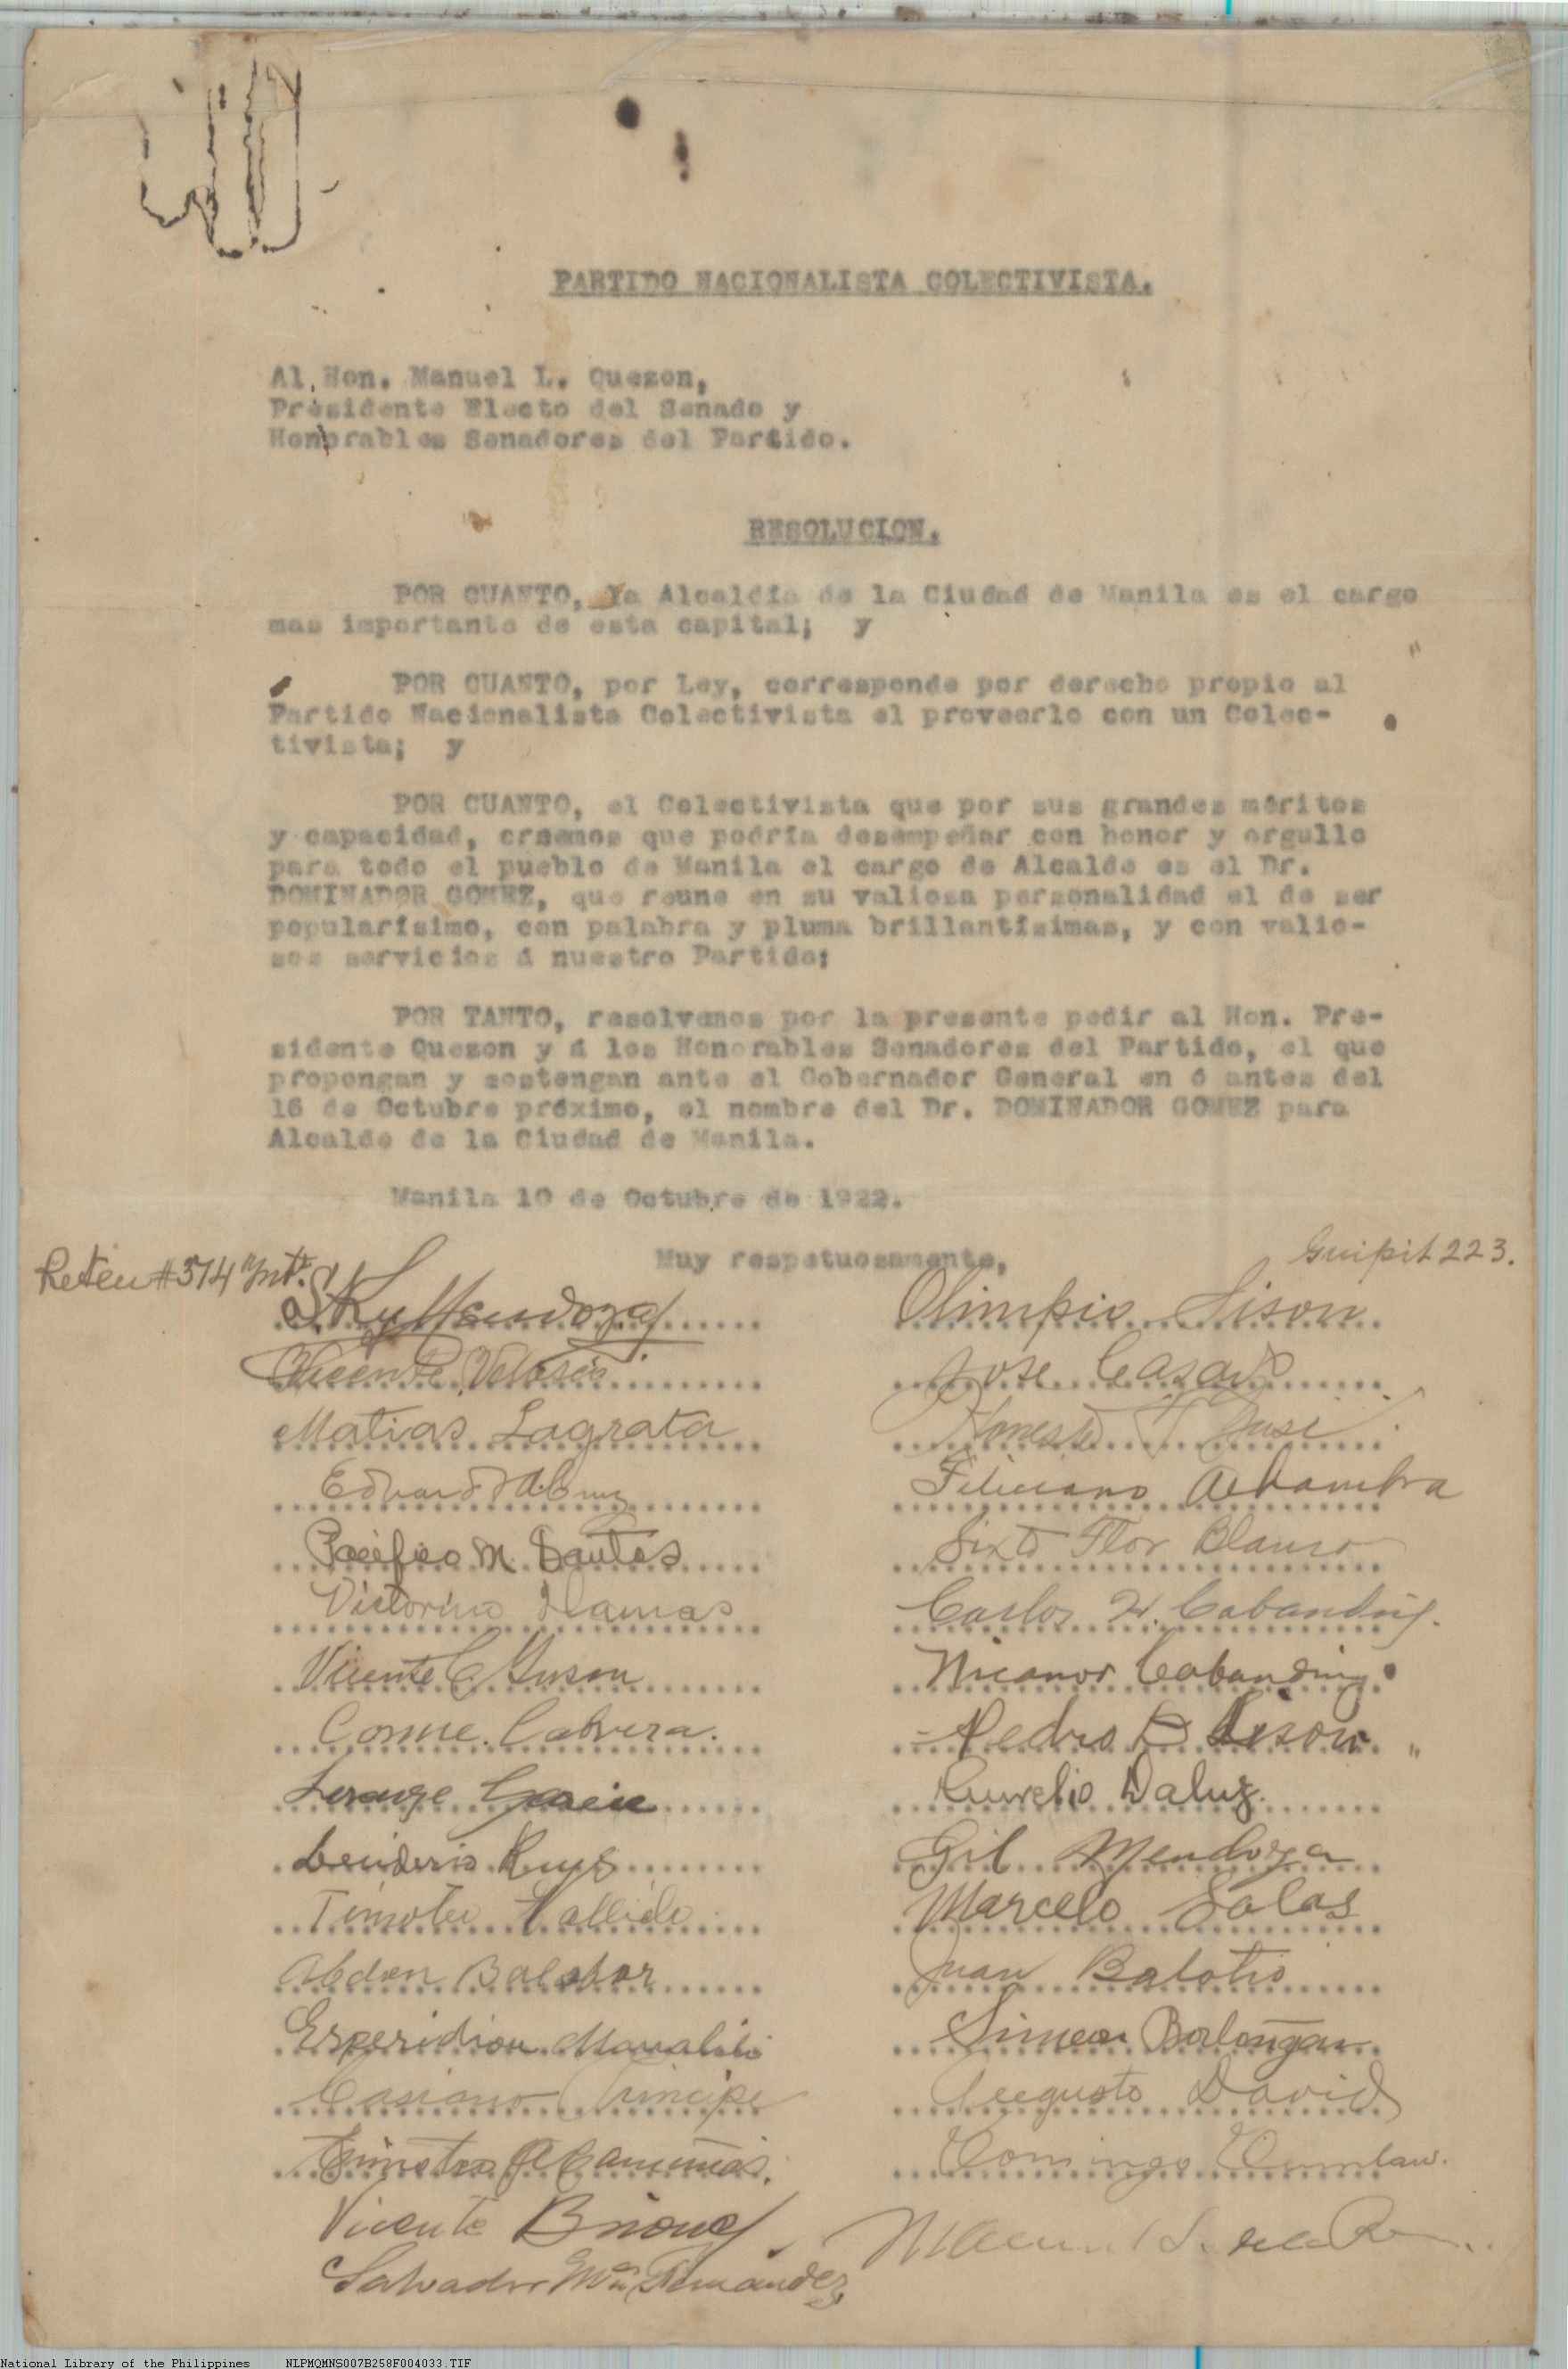 PARTIDO NACIONALISTA COLECTIVISTA.
Al Hon. Manuel L. Quezon,
Presidente Electo del Senado y
Honorables Senadores del Partido.
RESOLUCION.
POR CUANTO, la Alcaldía de la Ciudad de Manila es el cargo
mas importante de esta capital; y
POR CUANTO, por Ley, corresponde por derecho propio al
Partido Nacionalista Colectivista el proveerlo con un Colec-
tivista; y
POR CUANTO, el Colectivista que por sus grandes méritos
y capacidad, creemos que podría desempeñar con honor y orgullo
para todo el pueblo de Manila el cargo de Alcalde es el Dr.
DOMINADOR GOMEZ, que reune en su valiosa personalidad el de ser
popularísimo, con palabra y pluma brillantísimas, y con valio-
sos servicios á nuestro Partido;
POR TANTO, resolvemos por la presente pedir al Hon. Pre-
sidente Quezon y á los Honorables Senadores del Partido, el que
propongan y sostengan ante el Gobernador General en ó antes del
16 de Octubre próximo, el nombre del Dr. DOMINADOR GOMEZ para
Alcalde de la Ciudad de Manila.
Manila 10 de Octubre de 1922.
Muy respetuosamente,
#514 Int.
Guipit 223.
Mendoza
Olimpio Sison
Vicente
Jose
Matias Lagrata
Honesto
Feliciano Alhambra
Pacifico M. Santos
Sixto Flor Blanco
Victorino Llamas
Carlos H. Cabanding.
Vicente C.
Nicanor Cabanding
Cosme Cabrera.
Pedro Sison
Garcia
Aurelio Daluz.
Ruys
Gil Mendoza
Timoteo
Marcelo Salas
Abdon Balabar
Juan Balotio
Esperidion Manalili
Simeon Borloñgan
Casiano Principe
Augusto David
Domingo
Vicente Briones
Salvador Ma. Fernandez
National Library of the Philippines NLPMQMNS007B258F004033.TIF